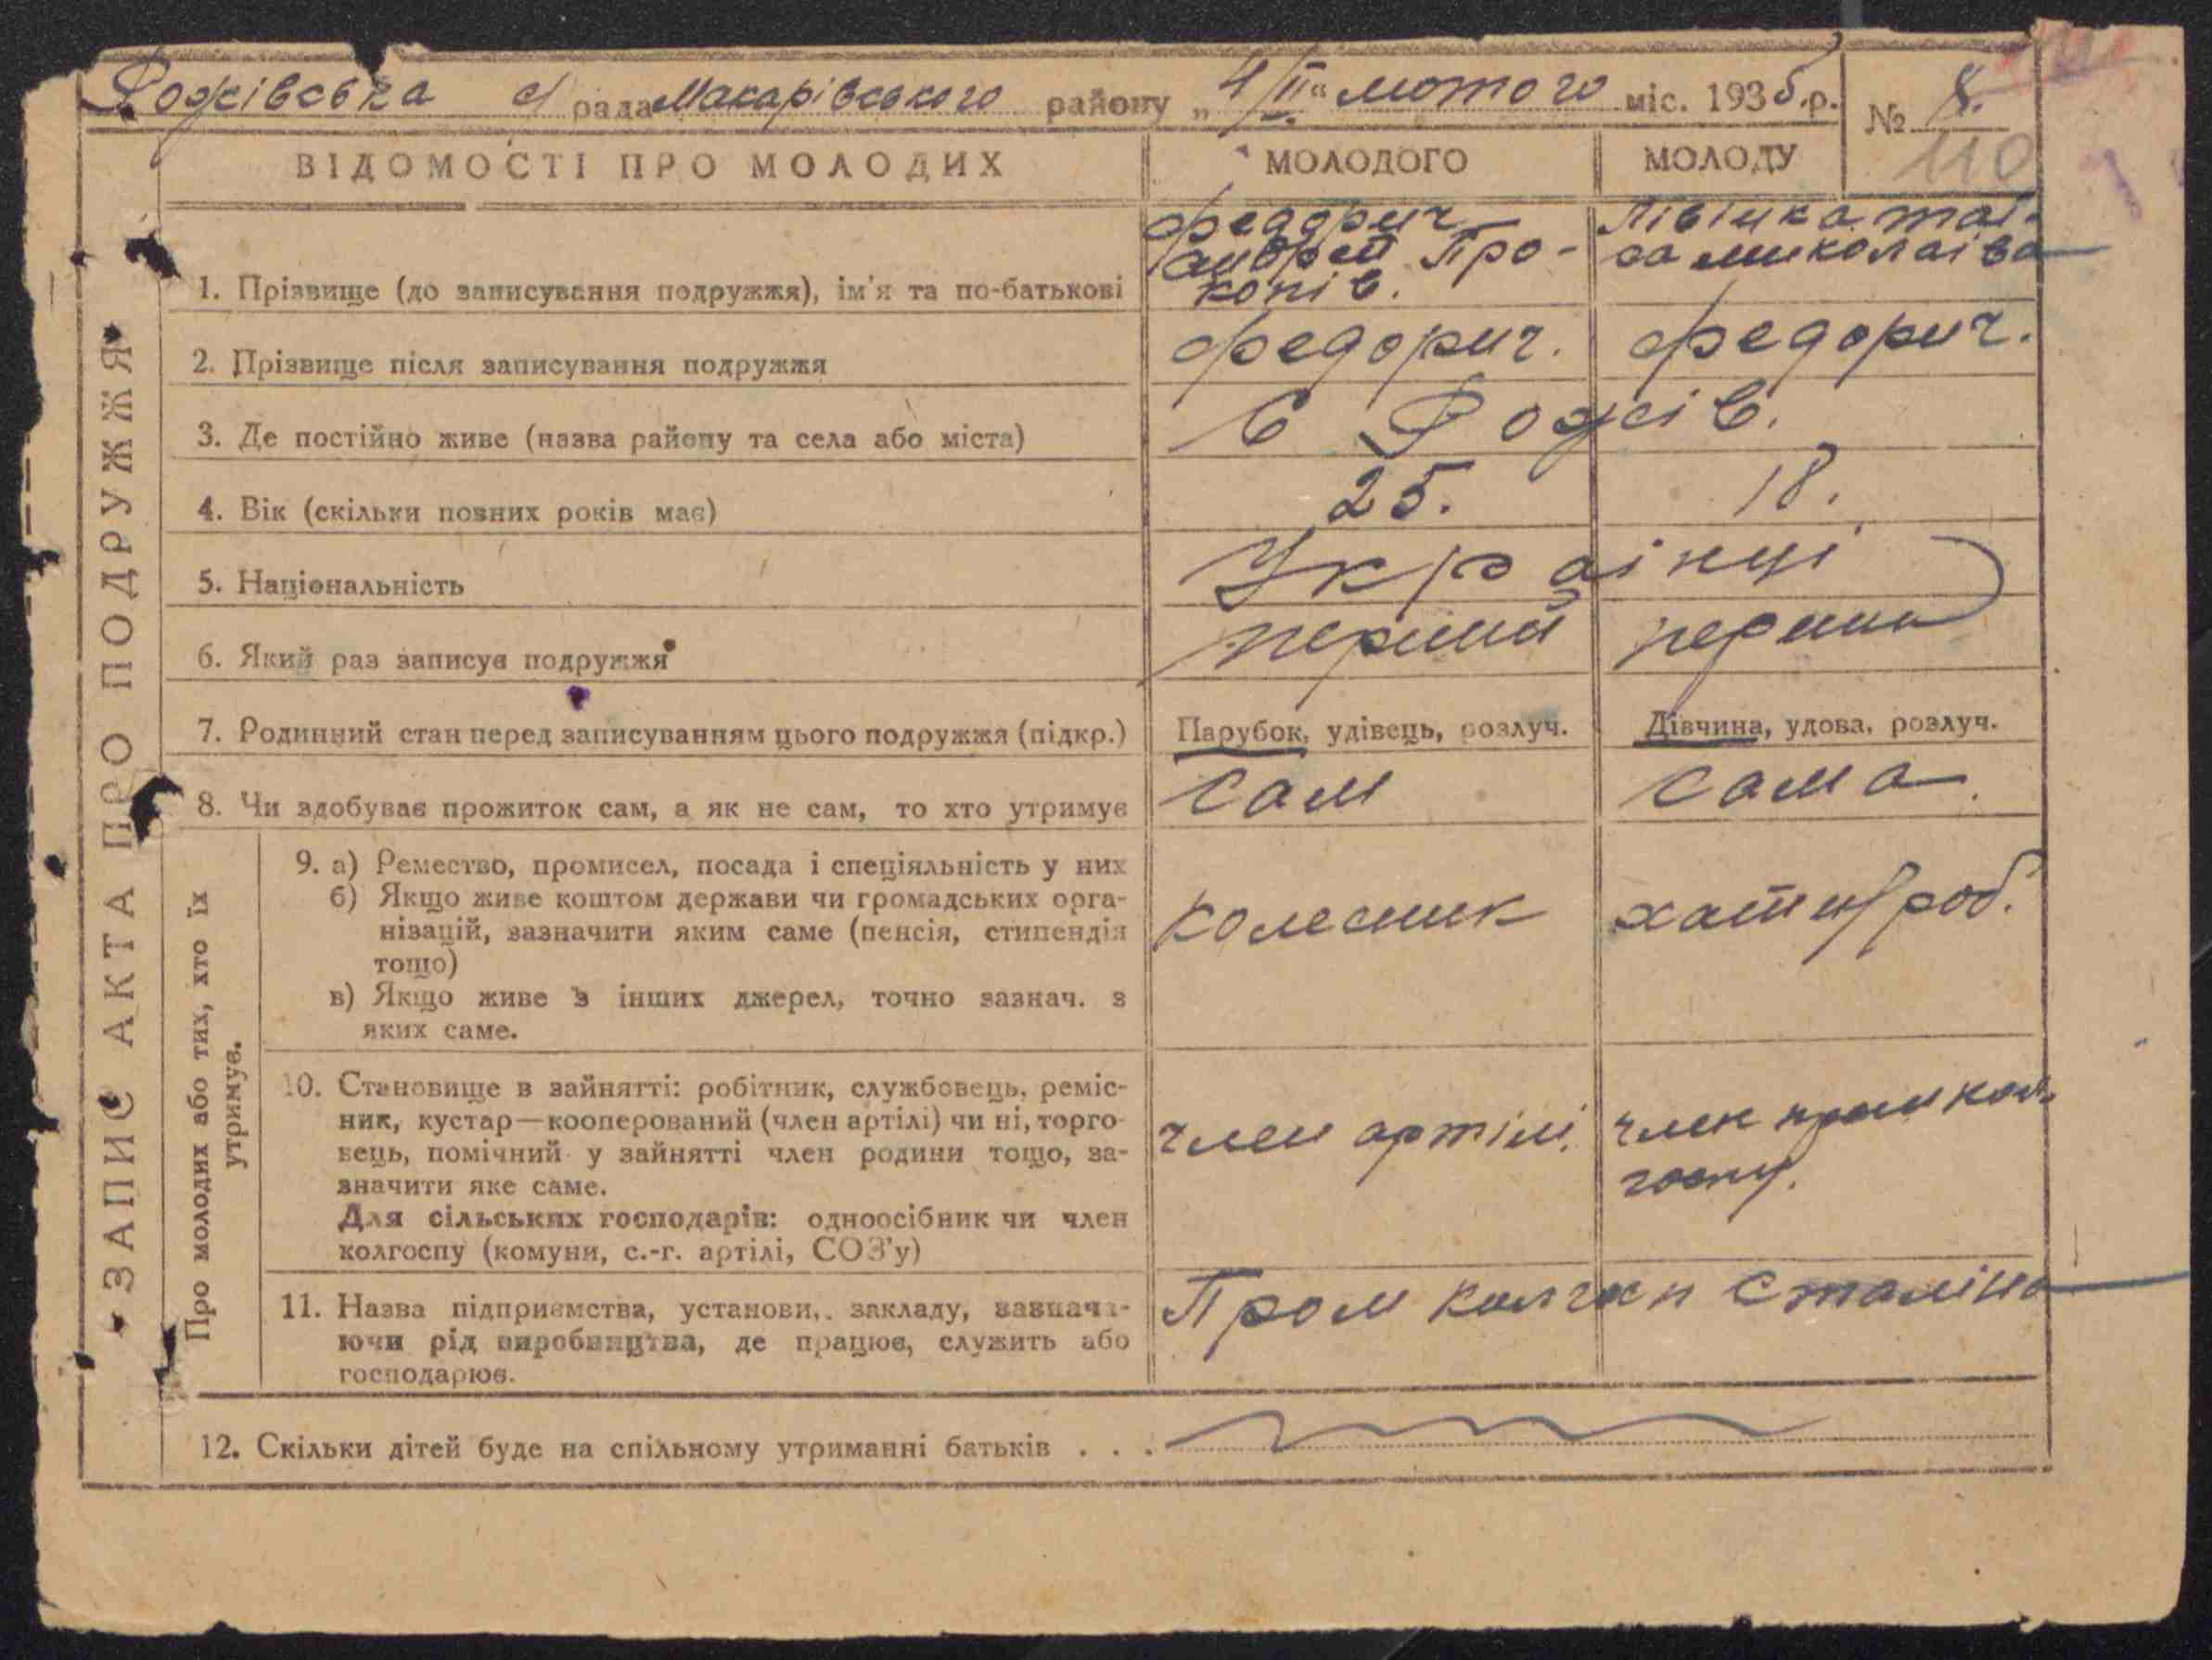 Рожівська с/рада Макарівського району „4/II" лютого міс. 1935.р.
№ 8.
110
ЗАПИС АКТА ПРО ПОДРУЖЖЯ
ВІДОМОСТІ ПРО МОЛОДИХ МОЛОДОГО МОЛОДУ
1. Прізвище (до записування подружжя), ім'я та по-батькові
Федорич
Андрей Про-
копів.
Лівінка таї-
са миколаіва
2. Прізвище після записування подружжя Федорич. Федорич.
3. Де постійно живе (назва району та села або міста) С Рожів.
4. Вік (скільки повних років має) 25. 18.
5. Національність Українці
6. Який раз записує подружжя перший перший
7. Родинний стан перед записуванням цього подружжя (підкр.) Парубок, удівець, розлуч. Дівчина, удова, розлуч.
8. Чи здобуває прожиток сам, а як не сам, то хто утримує сам сама.
Про молодих або тих, хто їх
утримує.
9. а) Ремество, промисел, посада і спеціяльність у них
б) Якщо живе коштом держави чи громадських орга-
нізацій, зазначити яким саме (пенсія, стипендія
тощо)
в) Якщо живе з інших джерел, точно зазнач. з
яких саме.
колесник
хатн/роб.
10. Становище в зайнятті: робітник, службовець, реміс-
ник, кустар—кооперований (член артілі) чи ні, торго-
вець, помічний у зайнятті член родини тощо, за-
значити яке саме.
Для сільських господарів: одноосібник чи член
колгоспу (комуни, с.-г. артілі, СОЗ'у)
член артілі.
член пром кол-
госпу.
11. Назва підприємства, установи, закладу, зазнача-
ючи рід виробництва, де працює, служить або
господарює.
Пром колгосп Сталіна
12. Скільки дітей буде на спільному утриманні батьків . . .